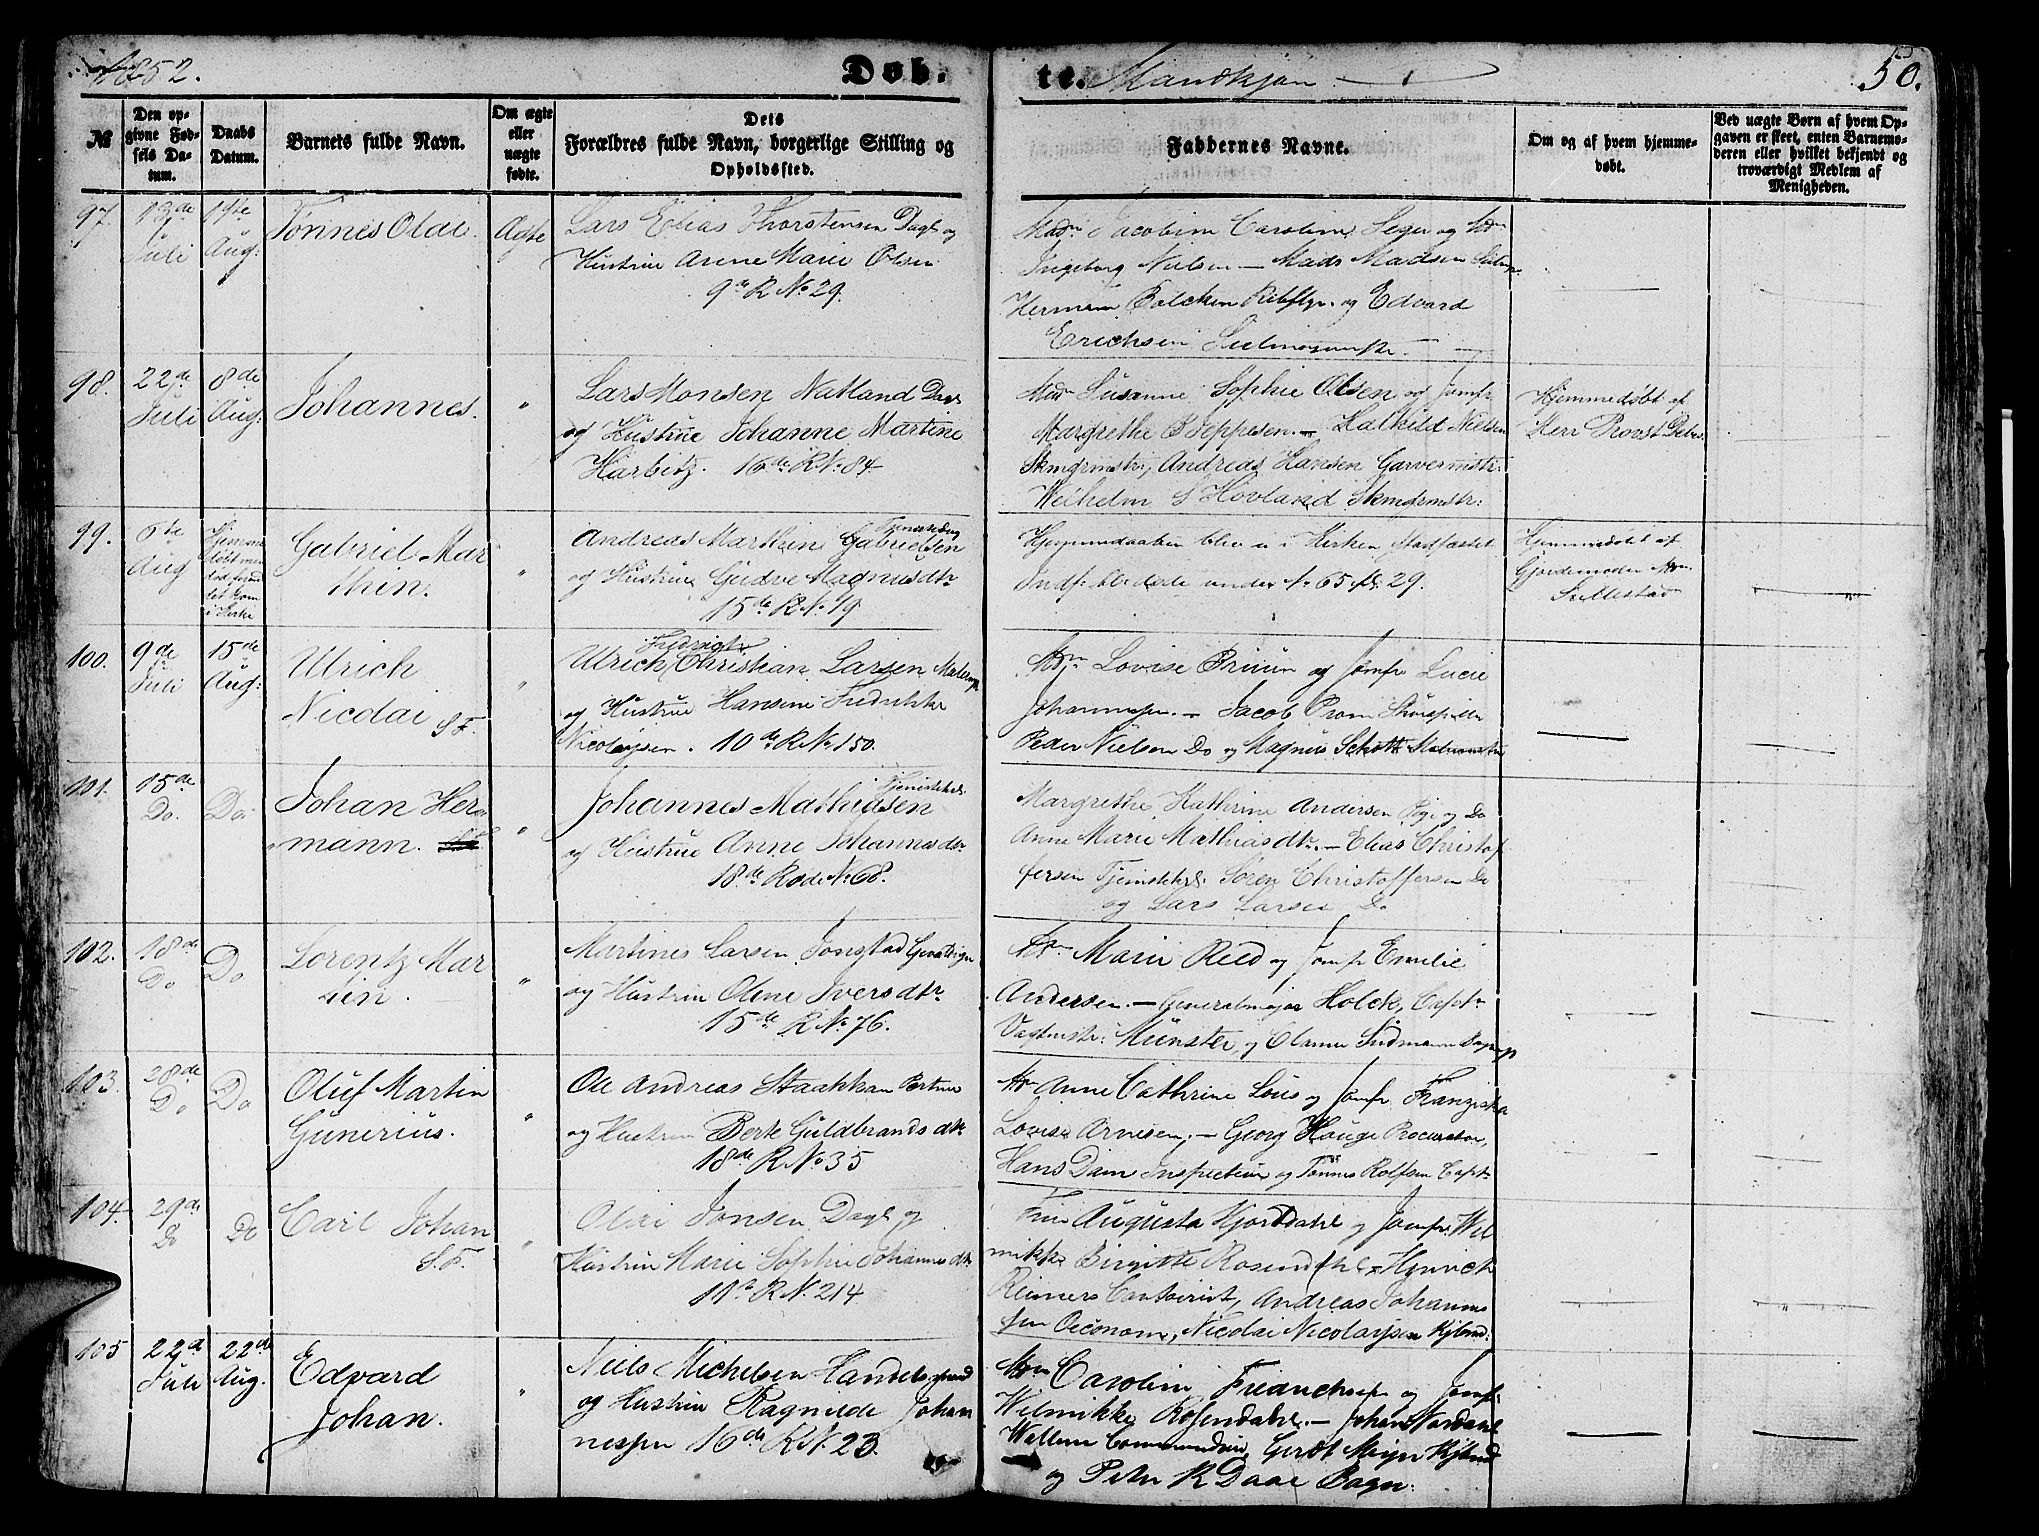 1852.
Døb-
te. Mandkjøn
50.
№
Den op-
givne Fød-
sels Da-
tum.
Daabs
Datum.
Barnets fulde Navn.
Om ægte
eller
uægte
fødte.
Dets
Forældres fulde Navn, borgerlige Stilling og
Opholdssted.
Faddernes Navne.
Om og af hvem hjemme-
døbt.
Ved uægte Børn af hvem Op-
gaven er skeet, enten Barnemo-
deren eller hvilket bekjendt og
troværdigt Medlem af
Menigheden.
97.
13de
Juli
1ste
Aug:
Tönnes Olai
Ægte
Lars Elias Thorstensen Dagl og
Hustrue Anne Marie Olsen
9de R No 29.
Mad: Jacobine Caroline og
Ingeborg Nielsen – Mads Madsen
Herman og Edvard
Erichsen
98.
22de
Juli
8de
Aug:
Johannes.
"
Lars Monsen Natland Dagl
og Hustrue Johanne Martine
Harbitz. 16de R No 84.
Mad: Susanne Sophie Olsen og Jomfr
Margrethe B Jeppesen. – Halkild Nielsen
Skmgrmstr, Andreas Hansen Garvermstr:
Wilhelm S Hovland Skmgrmstr:
Hjemmedøbt af
Herr Provst
99.
6te
Aug
Hjemme
døbt men
død forend
det kom
i Kirke
Gabriel Mar
thin.
"
Andreas Marthin Gabrielsen
og Hustrue Gudve Magnusdtr
15de R No 19
Hjemmedaaben blev ei i Kirken Stadfæstet
Indf: blødøde under No 65 fol: 29.
Hjemmedøbt af
Gjordemoder
Sellestad
100.
9de
Juli
15de
Aug:
Ulrich
Nicolai S.F.
"
Fredrigt
Ulrich Christian Larsen
og Hustrue Hansine Fredrikke
Nicolaysen. 10de R No 150.
Lovise Bruun og Jomfr Lucie
Johannesen. – Jacob Prom
Peder Nielsen Do og Magnus Schøtt
101.
15de
Do.
Do.
Johan Her
mann.
"
Johannes Mathiasen Tjenestekrl.
og Hustrue Anne Johannesdtr
18de Rode No 68.
Margrethe Kathrine Andersen Pige og Do
Anne Marie Mathiasdtr. – Elias Christof
fersen Tjenstekrl: Sören Christoffersen Do
og Lars Larsen Do
102.
18de
Do
Do
Lorentz Mar
tin.
"
Martines Larsen Jonstad
og Hustrue Oline Iversdtr
15de R No 76.
Marie Reed og Jomfr Emilie
Andersen. – Generalmajor Holck, Capt
Vagtmstr: Münster, og
103.
28de
Do
Do
Oluf Martin
Gunerius.
"
Ole Andreas Staakkan
og Hustrue Berte Guldbrandsdtr
18de R No 35
Anne Cathrine Lous og Jomfr Franziska
Lovise Arnesen, – Georg Hauge Procurator,
Hans Dam Inspecteur og Tönnes Rolfsen Capt
104.
29de
Do
Do
Carl Johan
S.F.
"
Olai Jonsen Dagl og
Hustrue Marie Sophie Johannesdtr
11te R No 214
Frue Augusta Hjortdahl og Jomfr: Wil
mikke Birgitte Rosendahl – Hinrich
Reimers Cantoirist, Andreas Johannes
sen Oeconom, Nicolai Nicolaysen Kjbmd:
105
22de
Juli
22de
Aug.
Edvard
Johan.
"
Niels Michelsen Handelsmand
og Hustrue Ragnilde Johan
nessen 16de R No 23.
Caroline og Jomfr:
Wilmikke Rosendahl. – Johan Nordahl
Wallem Gerdt Meyer Kjbmd
og Peter R Daae Bagr.